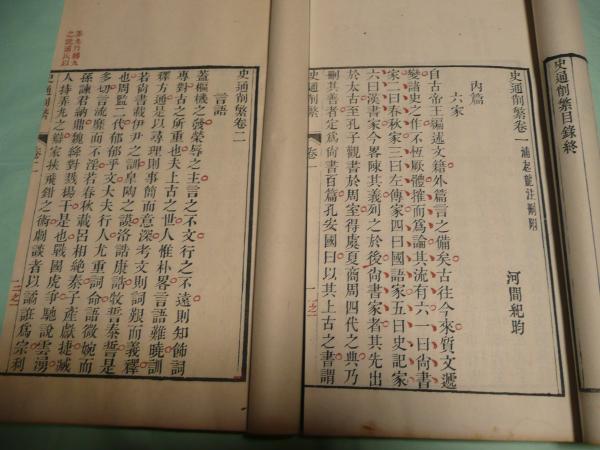 史通削繁目錄終
史通削繁卷一 浦起龍注删附
河間紀昀
內篇
六家
自古帝王編述文籍外篇言之備矣古往今來質文遞
變諸史之作不恆厥體搉而爲論其流有六一曰尚書
家二曰春秋家三曰左傳家四曰國語家五曰史記家
六曰漢書家今畧陳其義列之於後尚書家者其先出
於太古至孔子觀書於周室得虞夏商周四代之典乃
刪其善者定爲尚書百篇孔安國曰以其上古之書謂
史通削繁 卷一 一
史通削繁卷二
言語
蓋樞機之發榮辱之主言之不文行之不遠則知飾詞
專對古之所重也夫上古之世人惟朴畧言語難曉訓
釋方通是以尋理則事簡而意深考文則詞艱而義釋
若尚書載伊尹之訓皐陶之謨洛誥康誥牧誓泰誓是
也周監二代郁郁乎文大夫行人尤重詞命語微婉而
多切言流靡而不淫若春秋載呂相絕秦子產獻捷臧
孫諫君納鼎魏絳對戮楊干是也戰國虎爭馳說雲湧
人持弄丸之辯家挾飛鉗之術劇談者以譎誑爲宗利
史通削繁 卷二